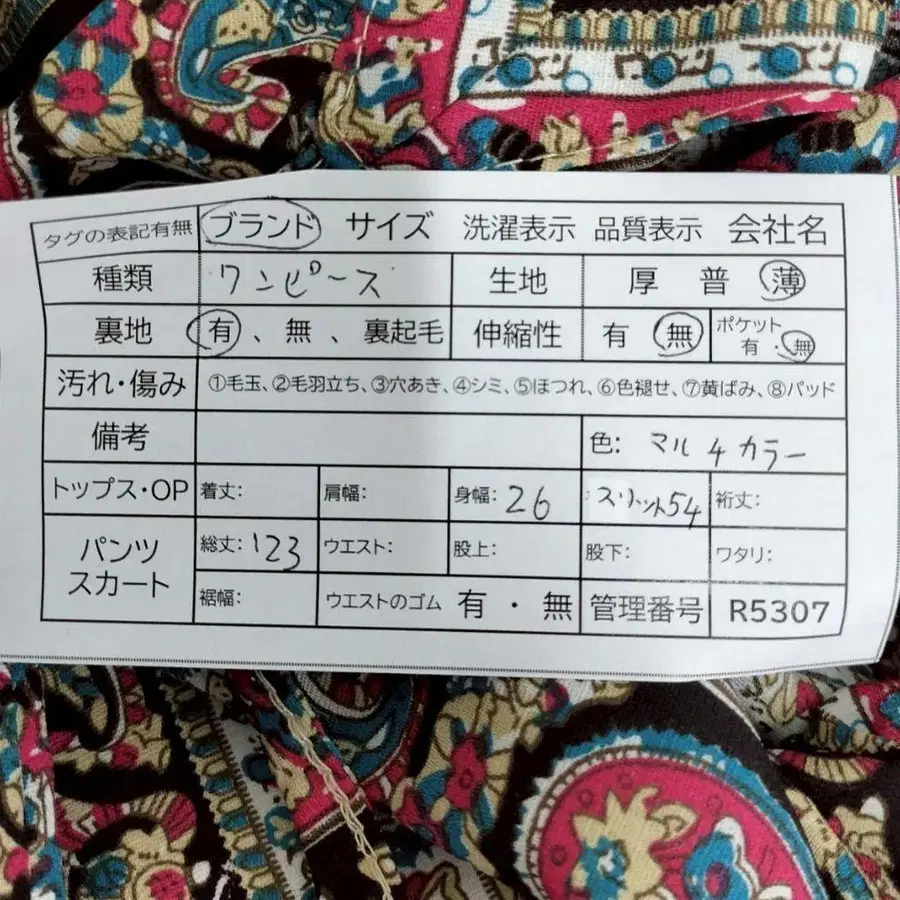 タグの表記有無 ブランド サイズ 洗濯表示 品質表示 会社名
種類 ワンピース 生地 厚 普 薄
裏地 有 、 無 、 裏起毛 伸縮性 有 無 ポケット 有 ・ 無
汚れ・傷み ①毛玉、②毛羽立ち、③穴あき、④シミ、⑤ほつれ、⑥色褪せ、⑦黄ばみ、⑧パッド
備考 色: マルチカラー
トップス・OP 着丈: 肩幅: 身幅: 26 スリット54 裄丈:
パンツ スカート 総丈: 123 ウエスト: 股上: 股下: ワタリ:
裾幅: ウエストのゴム 有 ・ 無 管理番号 R5307